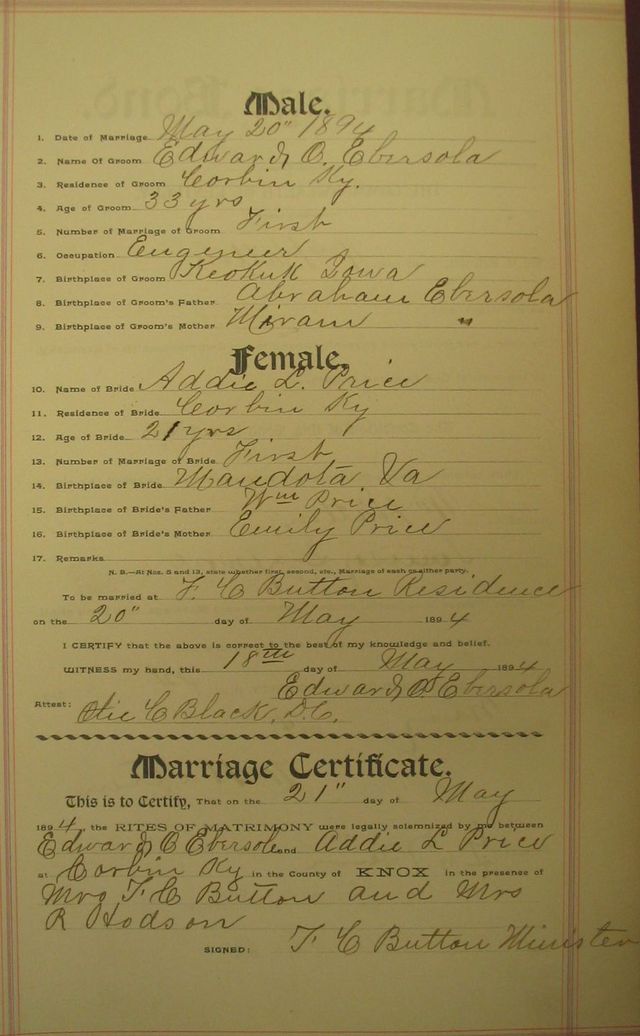 Male.
1. Date of Marriage May 20" 1894
2. Name of Groom Edward O. Ebersola
3. Residence of Groom Corbin Ky.
4. Age of Groom 33 yrs
5. Number of Marriage of Groom First
6. Occupation Engeneer
7. Birthplace of Groom Keokuk Iowa
8. Birthplace of Groom's Father Abraham Ebersola
9. Birthplace of Groom's Mother Miram "
Female.
10. Name of Bride Addie L. Price
11. Residence of Bride Corbin Ky
12. Age of Bride 21 yrs
13. Number of Marriage of Bride First
14. Birthplace of Bride Mandota Va
15. Birthplace of Bride's Father Wm Price
16. Birthplace of Bride's Mother Emily Price
17. Remarks
N. B.—At Nos. 5 and 13, state whether first, second, etc., Marriage of each or either party.
To be married at F. C Button Residence
on the 20" day of May 1894
I CERTIFY that the above is correct to the best of my knowledge and belief.
WITNESS my hand, this 18th day of May 1894
Edward O Ebersola
Attest: C Black, D.C.
Marriage Certificate.
This is to Certify, That on the 21" day of May
1894, the RITES OF MATRIMONY were legally solemnized by me between
Edward O Ebersole and Addie L Price
at Corbin Ky in the County of KNOX in the presence of
Mrs F C Button and Mrs
R Hodson
SIGNED: F C Button Minister